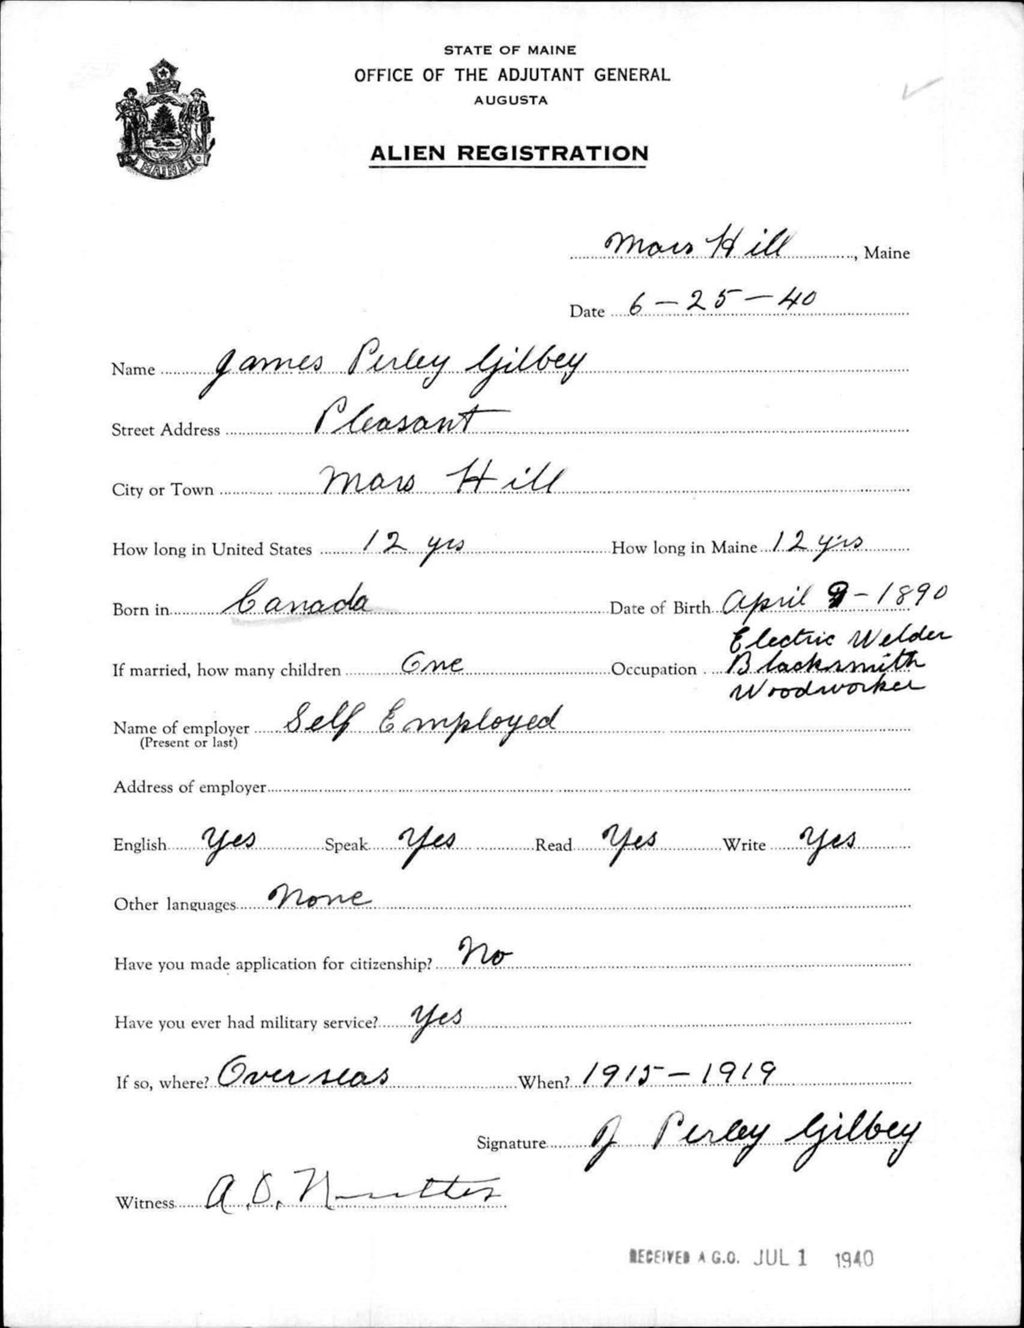 STATE OF MAINE
OFFICE OF THE ADJUTANT GENERAL
AUGUSTA
ALIEN REGISTRATION
MAINE
Mars Hill, Maine
Date 6-25-40
Name James Perley Gilbey
Street Address Pleasant
City or Town Mars Hill
How long in United States 12 yrs How long in Maine 12 yrs
Born in Canada Date of Birth April 9-1890
If married, how many children One Occupation Electric Welder
Blacksmith
Woodworker
Name of employer Self Employed
(Present or last)
Address of employer
English Yes Speak Yes Read Yes Write Yes
Other languages None
Have you made application for citizenship? No
Have you ever had military service? Yes
If so, where? Overseas When? 1915-1919
Signature J Perley Gilbey
Witness A.
RECEIVED A G.O. JUL 1 1940